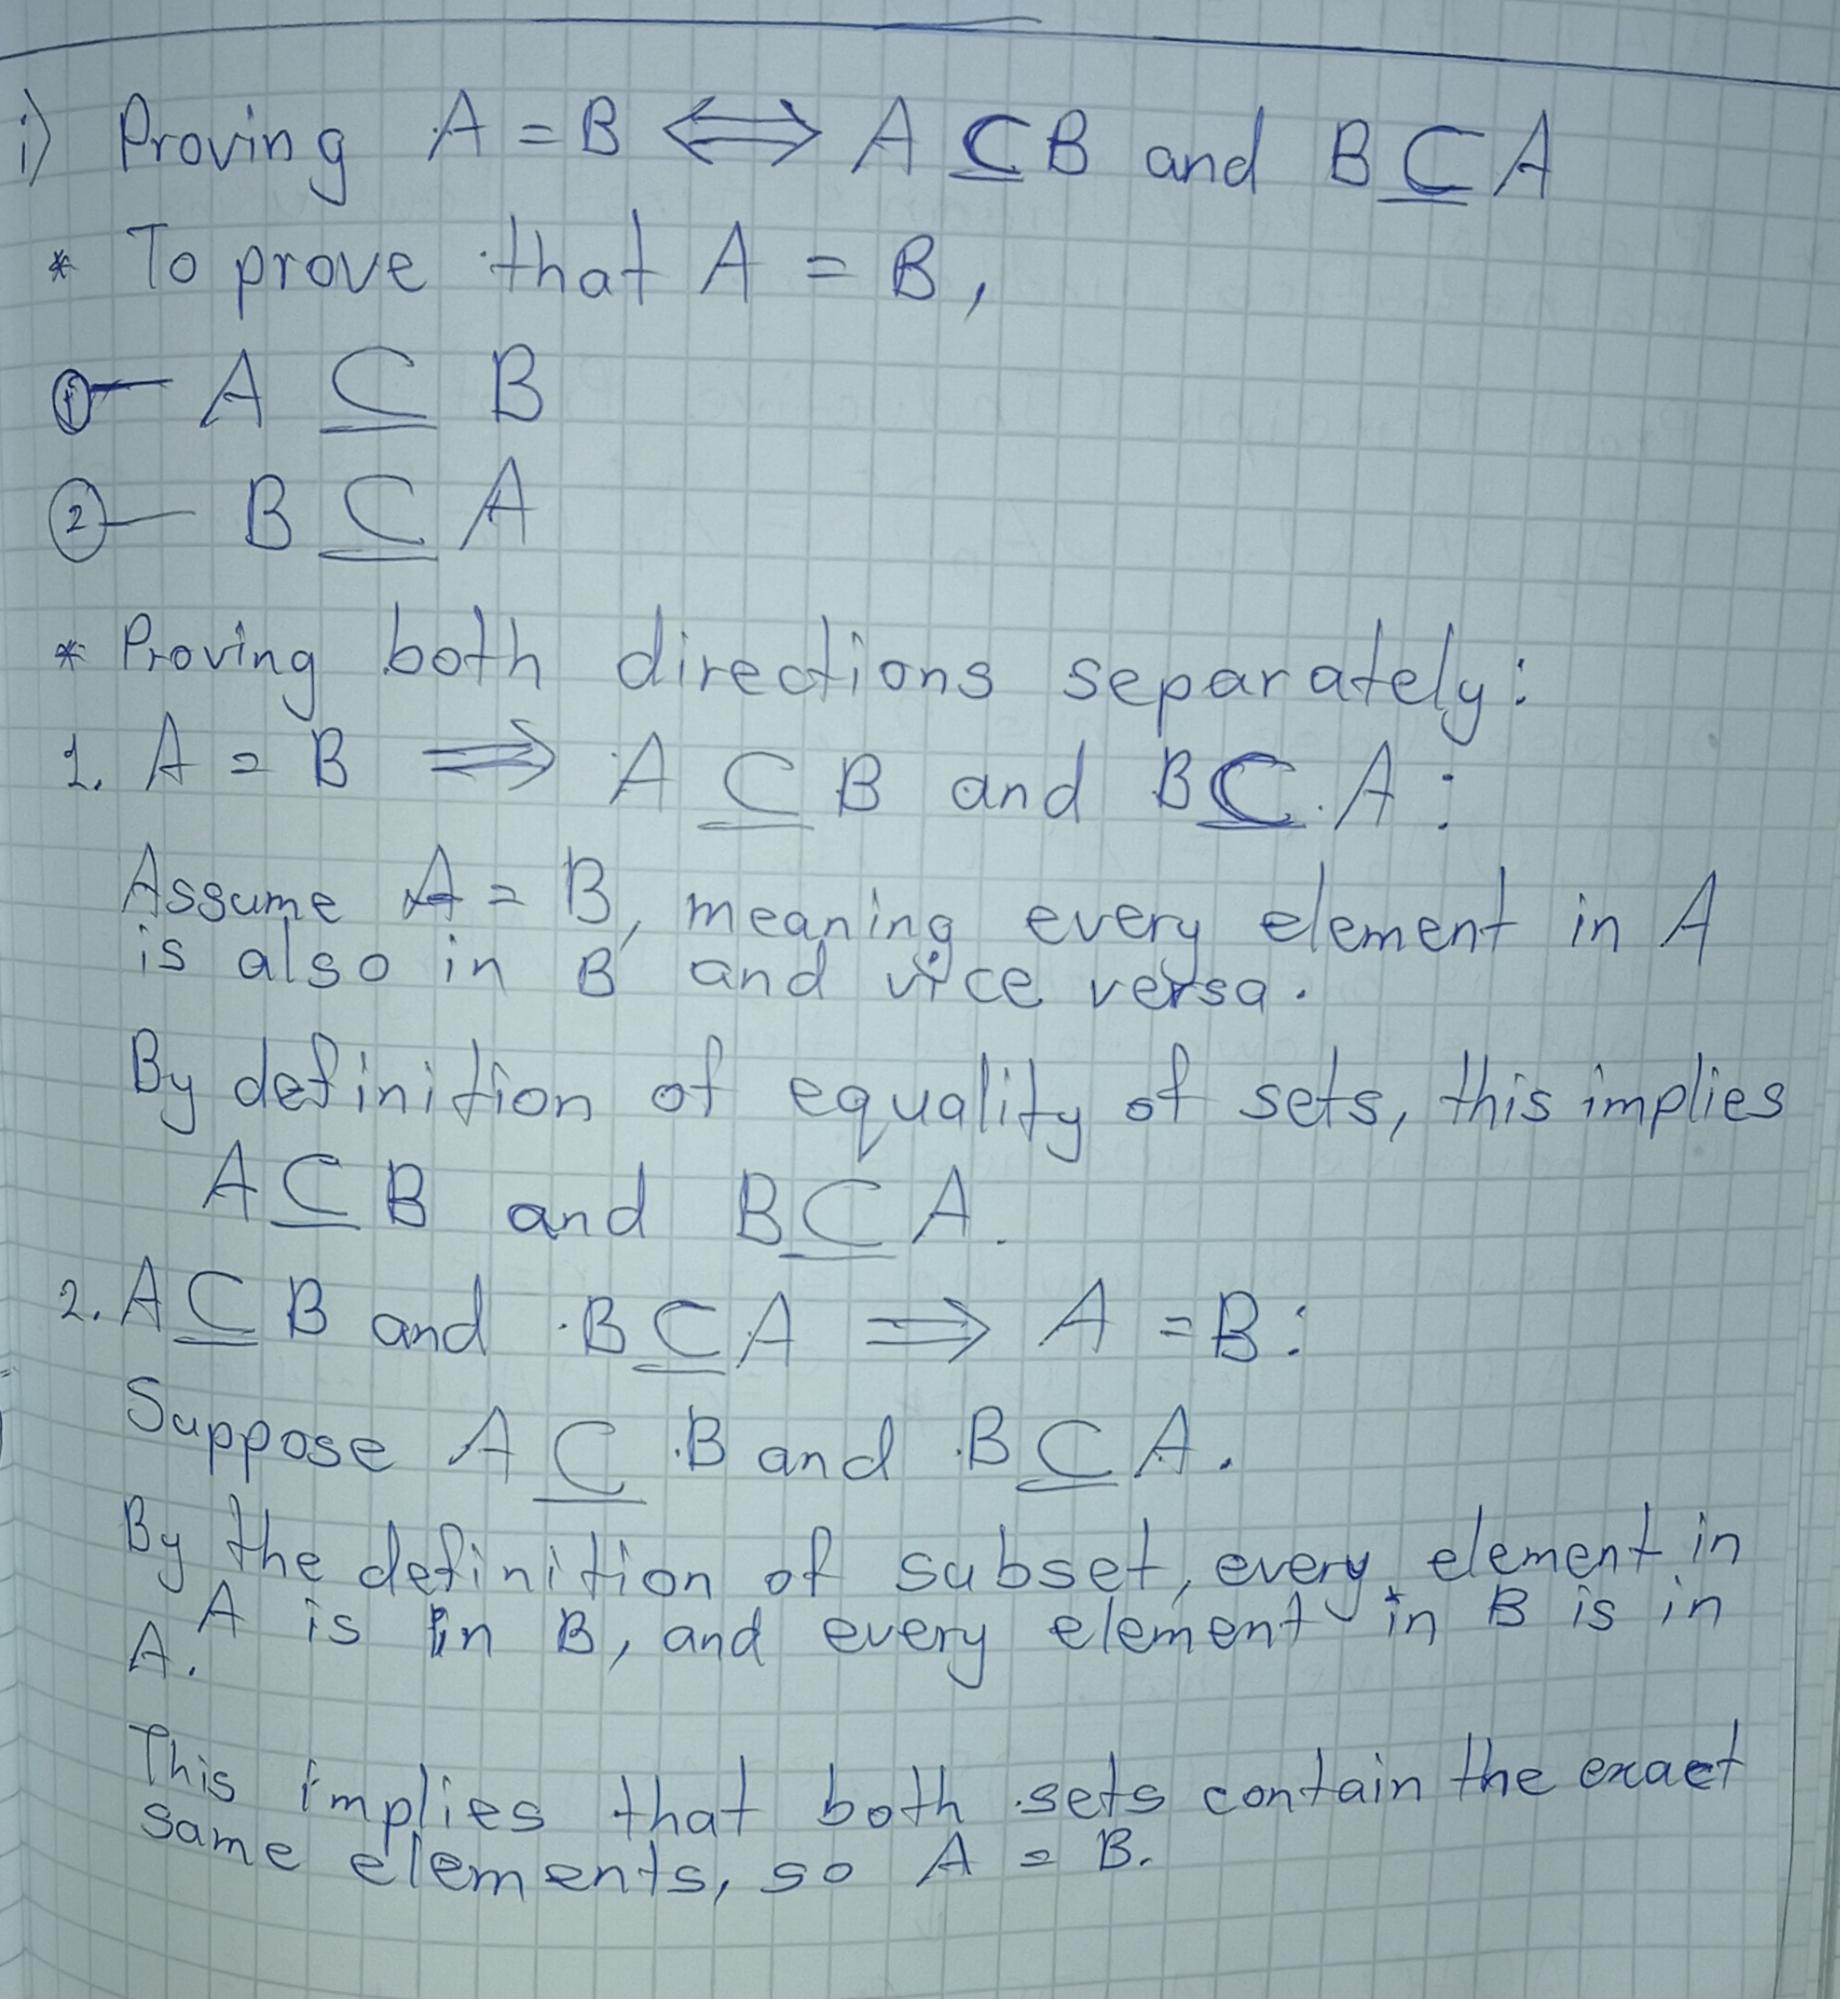 i) Proving A = B ⟺ A ⊆ B and B ⊆ A
* To prove that A = B,
① — A ⊆ B
② — B ⊆ A
* Proving both directions separately:
1. A = B ⟹ A ⊆ B and B ⊆ A:
Assume A = B, meaning every element in A
is also in B and vice versa.
By definition of equality of sets, this implies
A ⊆ B and B ⊆ A.
2. A ⊆ B and B ⊆ A ⟹ A = B:
Suppose A ⊆ B and B ⊆ A.
By the definition of subset, every element in
A is in B, and every element in B is in
A.
This implies that both sets contain the exact
same elements, so A = B.